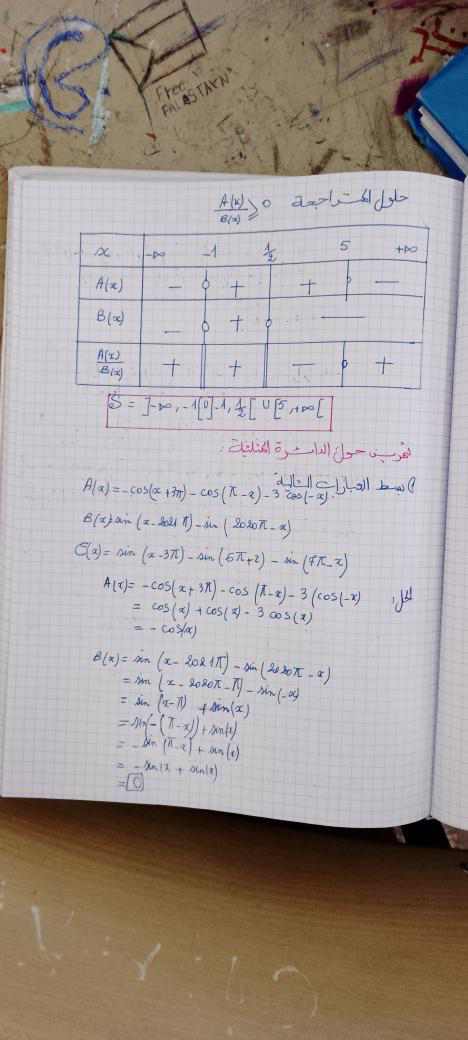 Free
FALASTAYN
حلول المتراجحة A(x)/B(x) ≥ 0
x -∞ -1 1/2 5 +∞
A(x) - 0 + + 0 -
B(x) - 0 + 0 —
A(x)/B(x) + + - 0 +
S = ]-∞, -1[∪]-1, 1/2[ ∪ [5, +∞[
تمرين حول الدائرة المثلثية:
1) بسط العبارات التالية
A(x) = -cos(x+3π) - cos(π-x) - 3 cos(-x).
B(x) = sin(x-2021π) - sin(2020π-x)
C(x) = sin(x-3π) - sin(5π+x) - sin(7π-x)
الحل:
A(x) = -cos(x+3π) - cos(π-x) - 3(cos(-x)
= cos(x) + cos(x) - 3 cos(x)
= - cos(x)
B(x) = sin(x-2021π) - sin(2020π-x)
= sin(x-2020π-π) - sin(-x)
= sin(x-π) + sin(x)
= sin(-(π-x)) + sin(x)
= - sin(π-x) + sin(x)
= - sin x + sin(x)
= 0